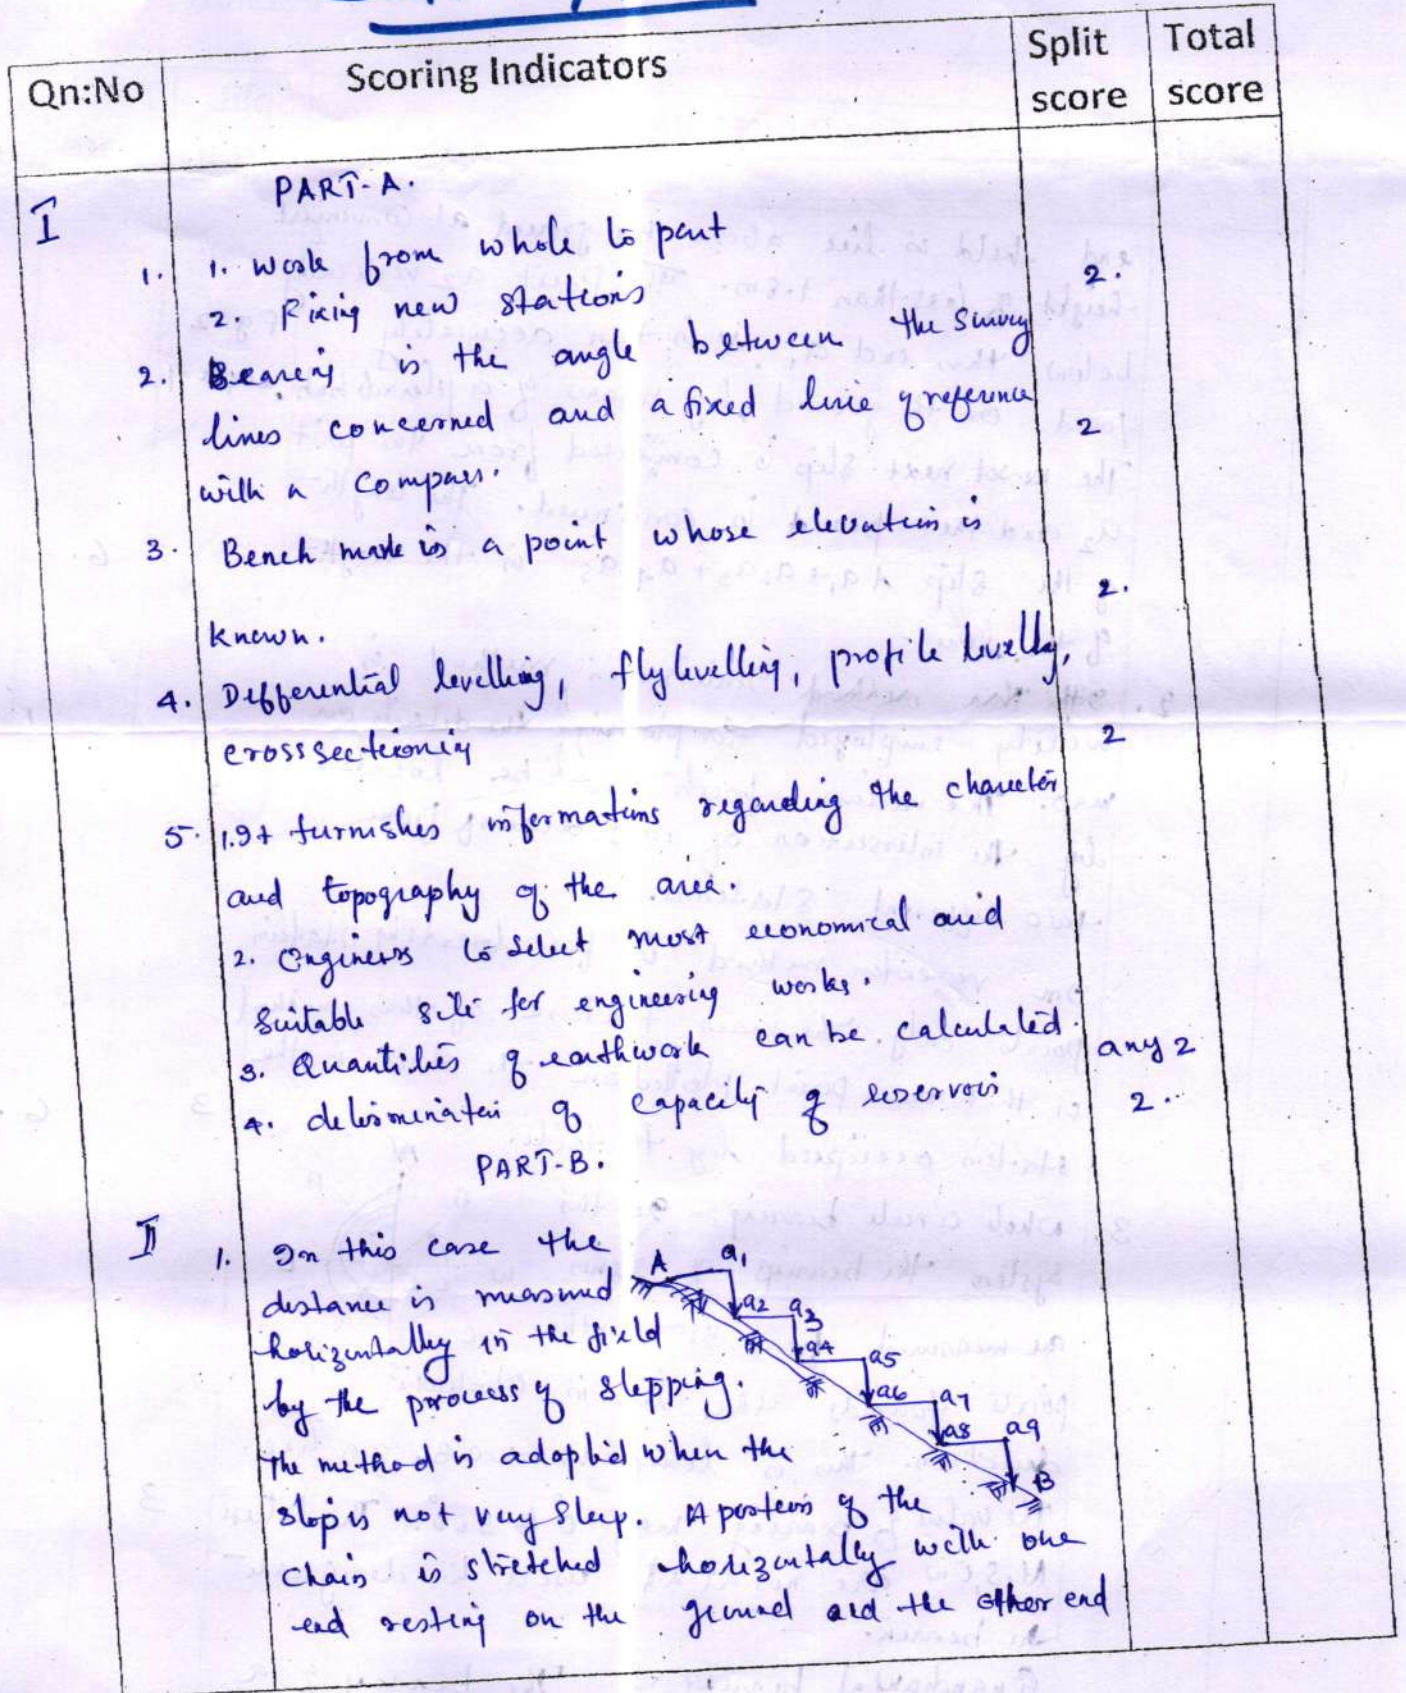 Qn:No Scoring Indicators Split score Total score
I PART-A.
1. 1. Work from whole to part
2. Fixing new stations 2.
2. Bearing is the angle between the survey
lines concerned and a fixed line of reference 2
with a compass.
3. Bench mark is a point whose elevation is
known. 2.
4. Differential levelling, fly levelling, profile levelling,
crosssectioning 2
5. 1. It furnishes informations regarding the character
and topography of the area.
2. Engineers to select most economical and
suitable site for engineering works.
3. Quantities of earthwork can be calculated. any 2
4. determination of capacity of reservoir 2.
PART-B.
II 1. In this case the
distance is measured
horizontally in the field
by the process of stepping.
The method is adopted when the
slop is not very steep. A portion of the
chain is stretched horizontally with one
end resting on the ground and the other end
A a1
a2 a3
a4 a5
a6 a7
a8 a9
B